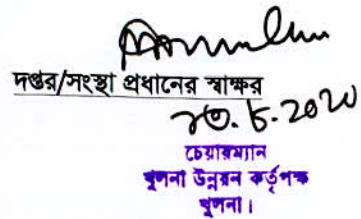 দপ্তর/সংস্থা প্রধানের স্বাক্ষর
২৩.৮.2020
চেয়ারম্যান
খুলনা উন্নয়ন কর্তৃপক্ষ
খুলনা।